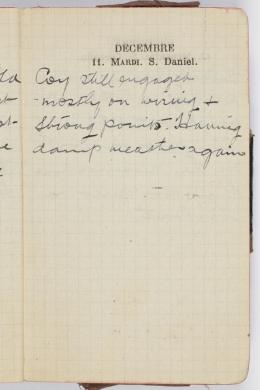 DECEMBRE
11. MARDI. S. Daniel.
Coy still engaged
mostly on wiring +
strong points. Having
damp weather again